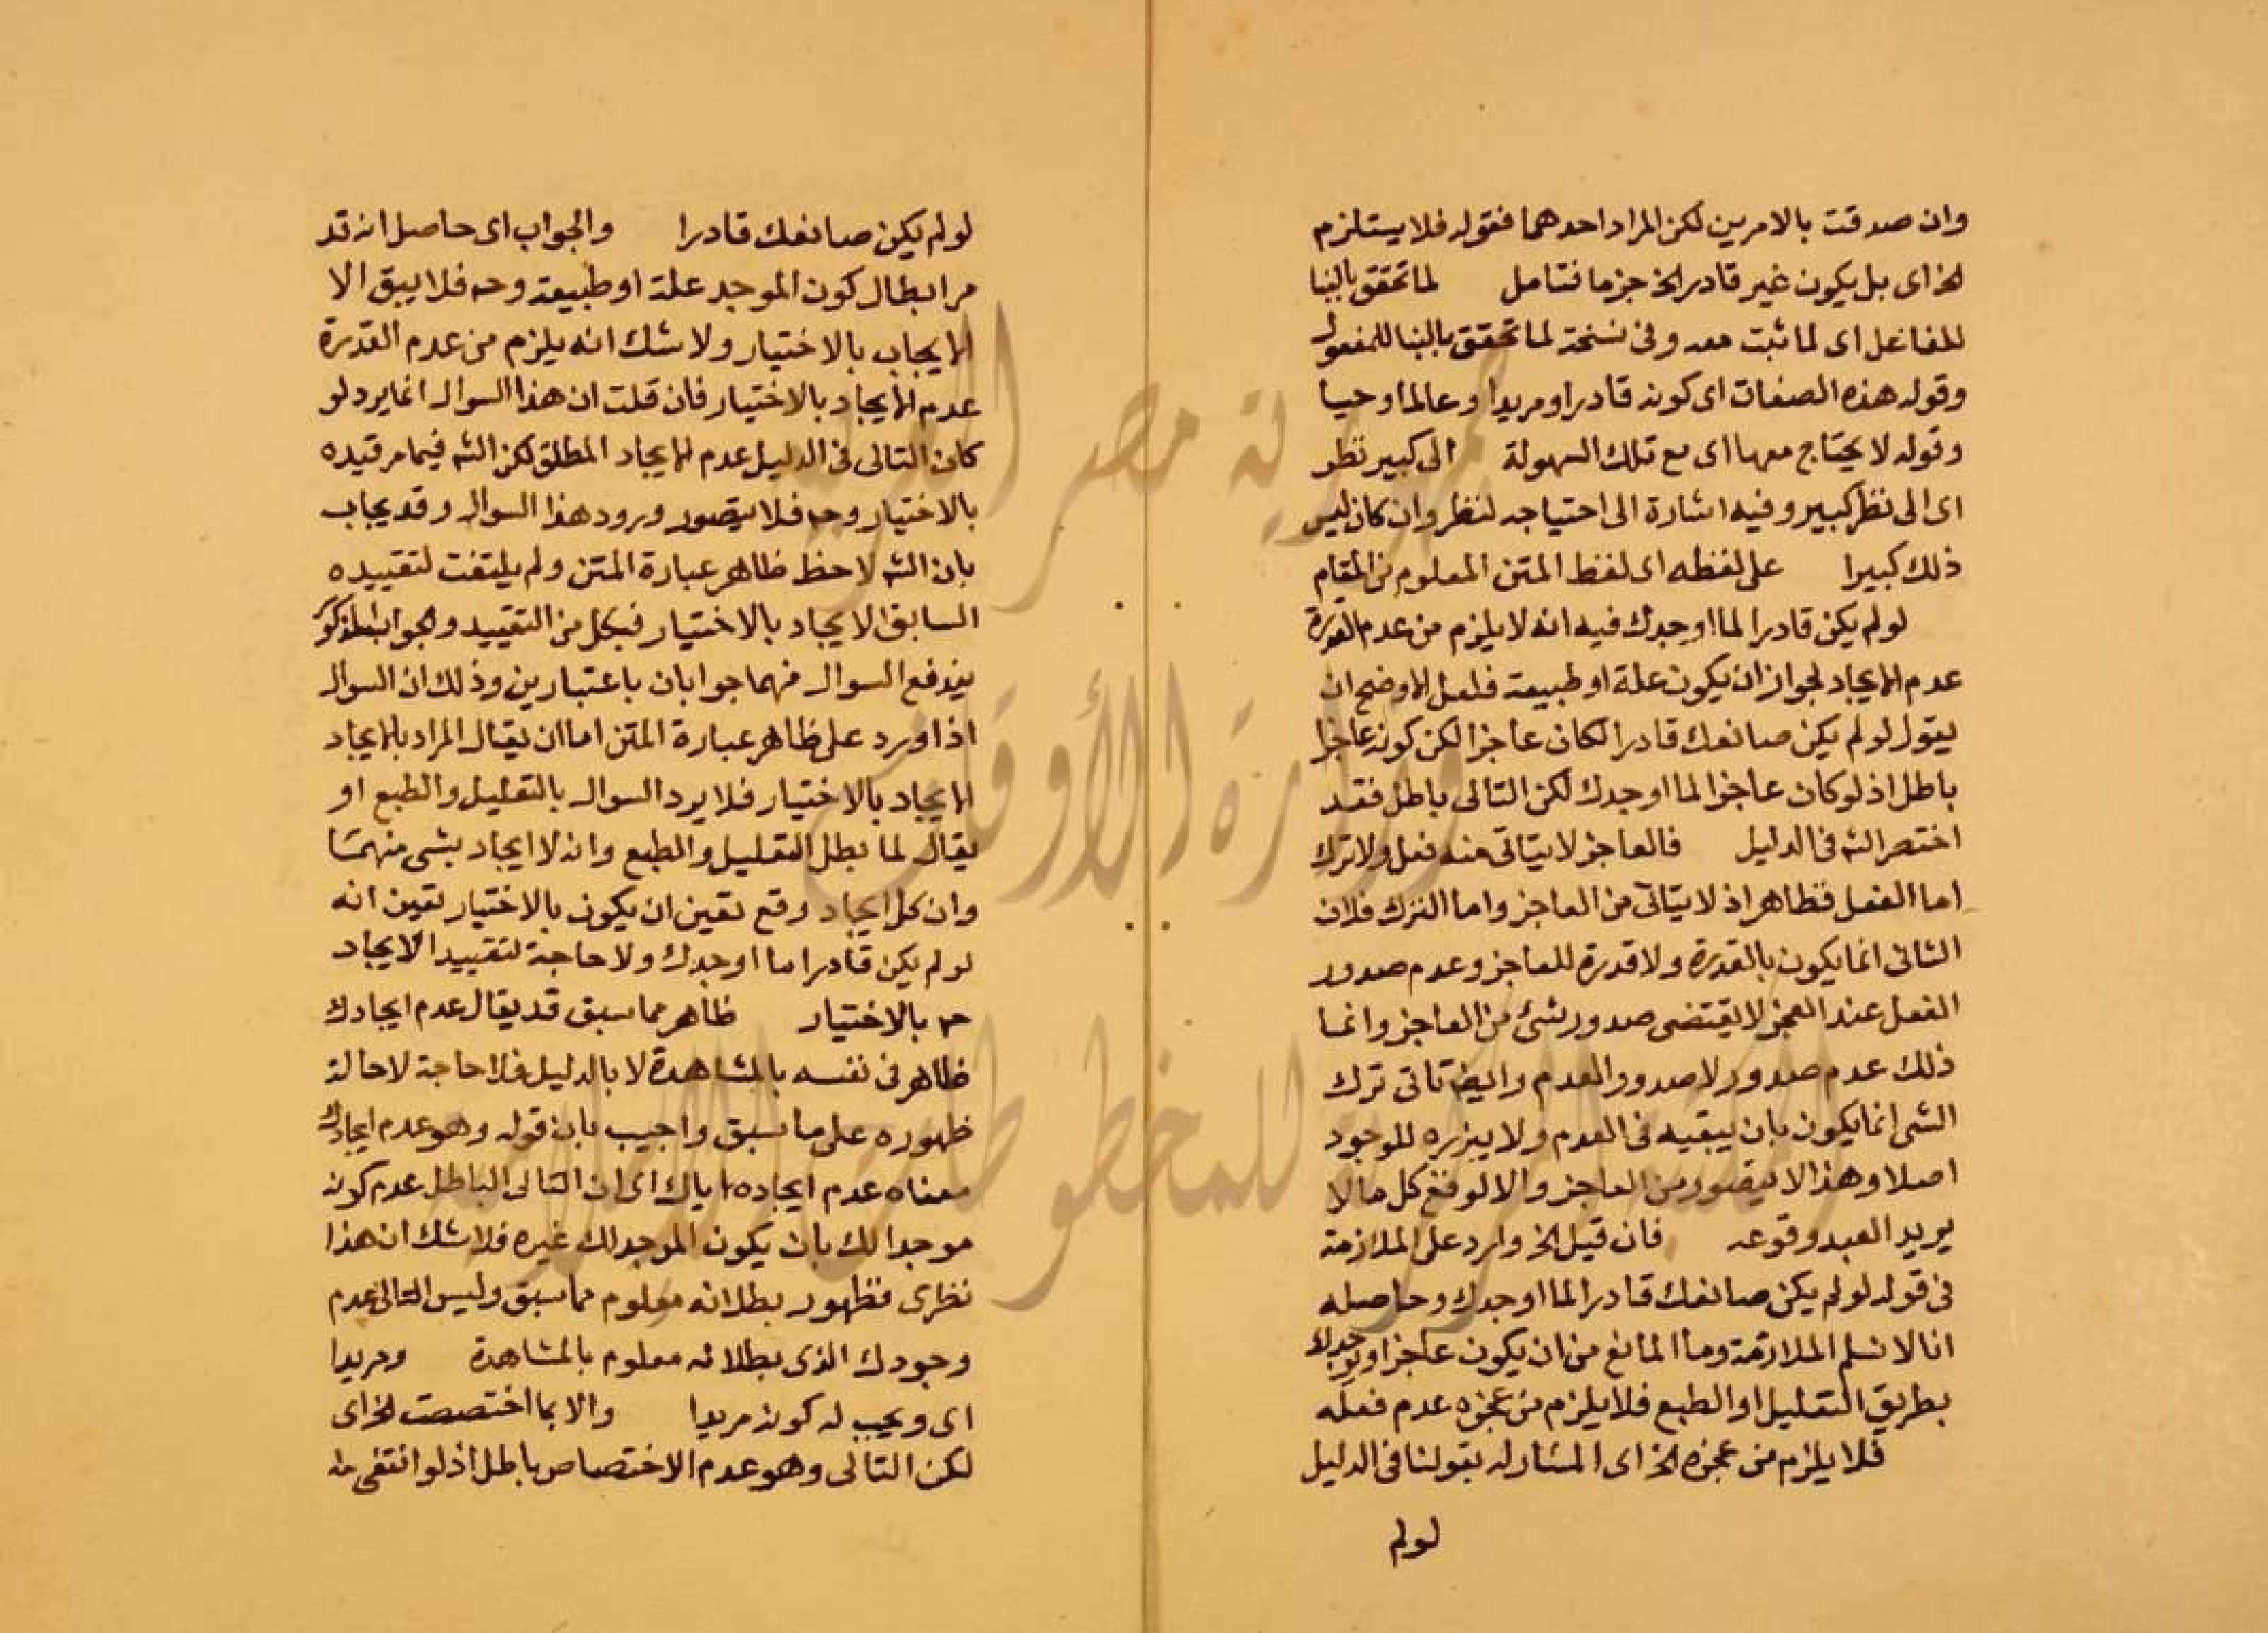 وان صدقت بالامرين لكن المراد احدهما فقوله فلا يستلزم
الخ اى بل يكون غير قادر الخ جزما فتامل لما تحقق بالبنا
للفاعل اى لما ثبت معه وفى نسخة لما تحقق بالبنا للمفعول
وقوله هذه الصفات اى كونه قادرا ومريدا وعالما وحيا
وقوله لا يحتاج معها اى مع تلك السهولة الى كبير نظر
اى الى نظر كبير وفيه اشارة الى احتياجه لنظر وان كان ليس
ذلك كبيرا على لفظه اى لفظ المتن المعلوم من المقام
لو لم يكن قادرا لما اوجدك فيه انه لا يلزم من عدم القدرة
عدم الايجاد لجواز ان يكون علة او طبيعة فلعل الاوضح ان
يقول لو لم يكن صانعك قادرا لكان عاجزا لكن كونه عاجزا
باطل اذ لو كان عاجزا لما اوجدك لكن التالى باطل فقد
اختصر الشه فى الدليل فالعاجز لا يتاتى منه فعل ولا ترك
اما الفعل فظاهر اذ لا يتاتى من العاجز واما الترك فلان
الثانى انما يكون بالقدرة ولا قدرة للعاجز وعدم صدور
الفعل عند العجز لا يقتضى صدور شئ من العاجز وانما
ذلك عدم صدور لا صدور العدم وايضا تاتى ترك
الشى انما يكون بان يبقيه فى العدم ولا يبرزه للوجود
اصلا وهذا لا يتصور من العاجز والا لوقع كل ما لا
يريد العبد وقوعه فان قيل الخ وارد على الملازمة
فى قوله لو لم يكن صانعك قادرا لما اوجدك وحاصله
انا لا نسلم الملازمة وما المانع من ان يكون عاجزا ويوجدك
بطريق التعليل او الطبع فلا يلزم من عجزه عدم فعله
فلا يلزم من عجزه الخ اى المشار له بقولنا فى الدليل
لو لم
لو لم يكن صانعك قادرا والجواب اى حاصل انه قد
مر ابطال كون الموجد علة او طبيعة وحـ فلا يبق الا
الايجاب بالاختيار ولا شك انه يلزم من عدم القدرة
عدم الايجاد بالاختيار فان قلت ان هذا السوال انما يرد لو
كان التالى فى الدليل عدم الايجاد المطلق لكن الشه فيما مر قيده
بالاختيار وحـ فلا يتصور ورود هذا السوال وقد يجاب
بان الشه لاحظ ظاهر عبارة المتن ولم يلتفت لتقييده
السابق الايجاد بالاختيار فبكل من التقييد والجواب المذكور
يندفع السوال فهما جوابان باعتبارين وذلك ان السوال
اذا ورد على ظاهر عبارة المتن اما ان يقال المراد بالايجاد
الايجاد بالاختيار فلا يرد السوال بالتعليل والطبع او
يقال لما بطل التعليل والطبع وانه لا ايجاد بشى منهما
وان كل ايجاد وقع تعين ان يكون بالاختيار تعين انه
لو لم يكن قادرا ما اوجدك ولا حاجة لتقييد الايجاد
حـ بالاختيار ظاهر مما سبق قد يقال عدم ايجادك
ظاهر فى نفسه بالمشاهدة لا بالدليل فلا حاجة لاحالة
ظهوره على ما سبق واجيب بان قوله وهو عدم ايجادك
معناه عدم ايجاده اياك اى ان التالى الباطل عدم كونه
موجدا لك بان يكون الموجد لك غيره فلا شك ان هذا
نظرى فظهور بطلانه معلوم مما سبق وليس التالى عدم
وجودك الذى بطلانه معلوم بالمشاهدة ومريدا
اى ويجب له كونه مريدا والا بما اختصصت الخ اى
لكن التالى وهو عدم الاختصاص باطل اذ لو انتفى